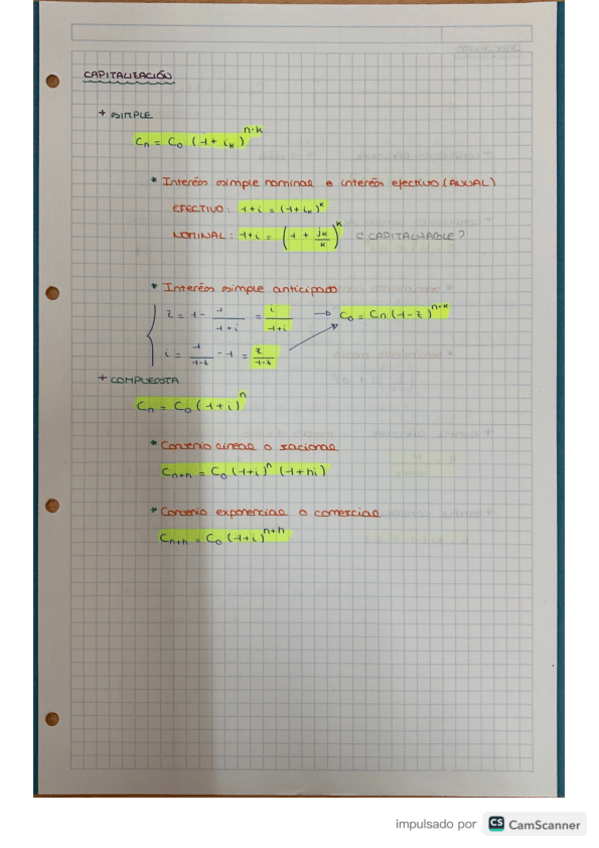 CAPITALIZACIÓN
+ SIMPLE
Cn = C0 (1 + ik)^n·k
* Interés simple nominal e interés efectivo (ANUAL)
EFECTIVO: 1+i = (1+ik)^k
NOMINAL: 1+i = (1 + jk/k)^k ¿CAPITALIZABLE?
* Interés simple anticipado
z = 1 - 1/(1+i) = i/(1+i) → C0 = Cn (1-z)^n·k
i = 1/(1-z) - 1 = z/(1-z)
+ COMPUESTA
Cn = C0 (1+i)^n
* Convenio lineal o racional
Cn+h = C0 (1+i)^n (1+hi)
* Convenio exponencial o comercial
Cn+h = C0 (1+i)^n+h
impulsado por CS CamScanner